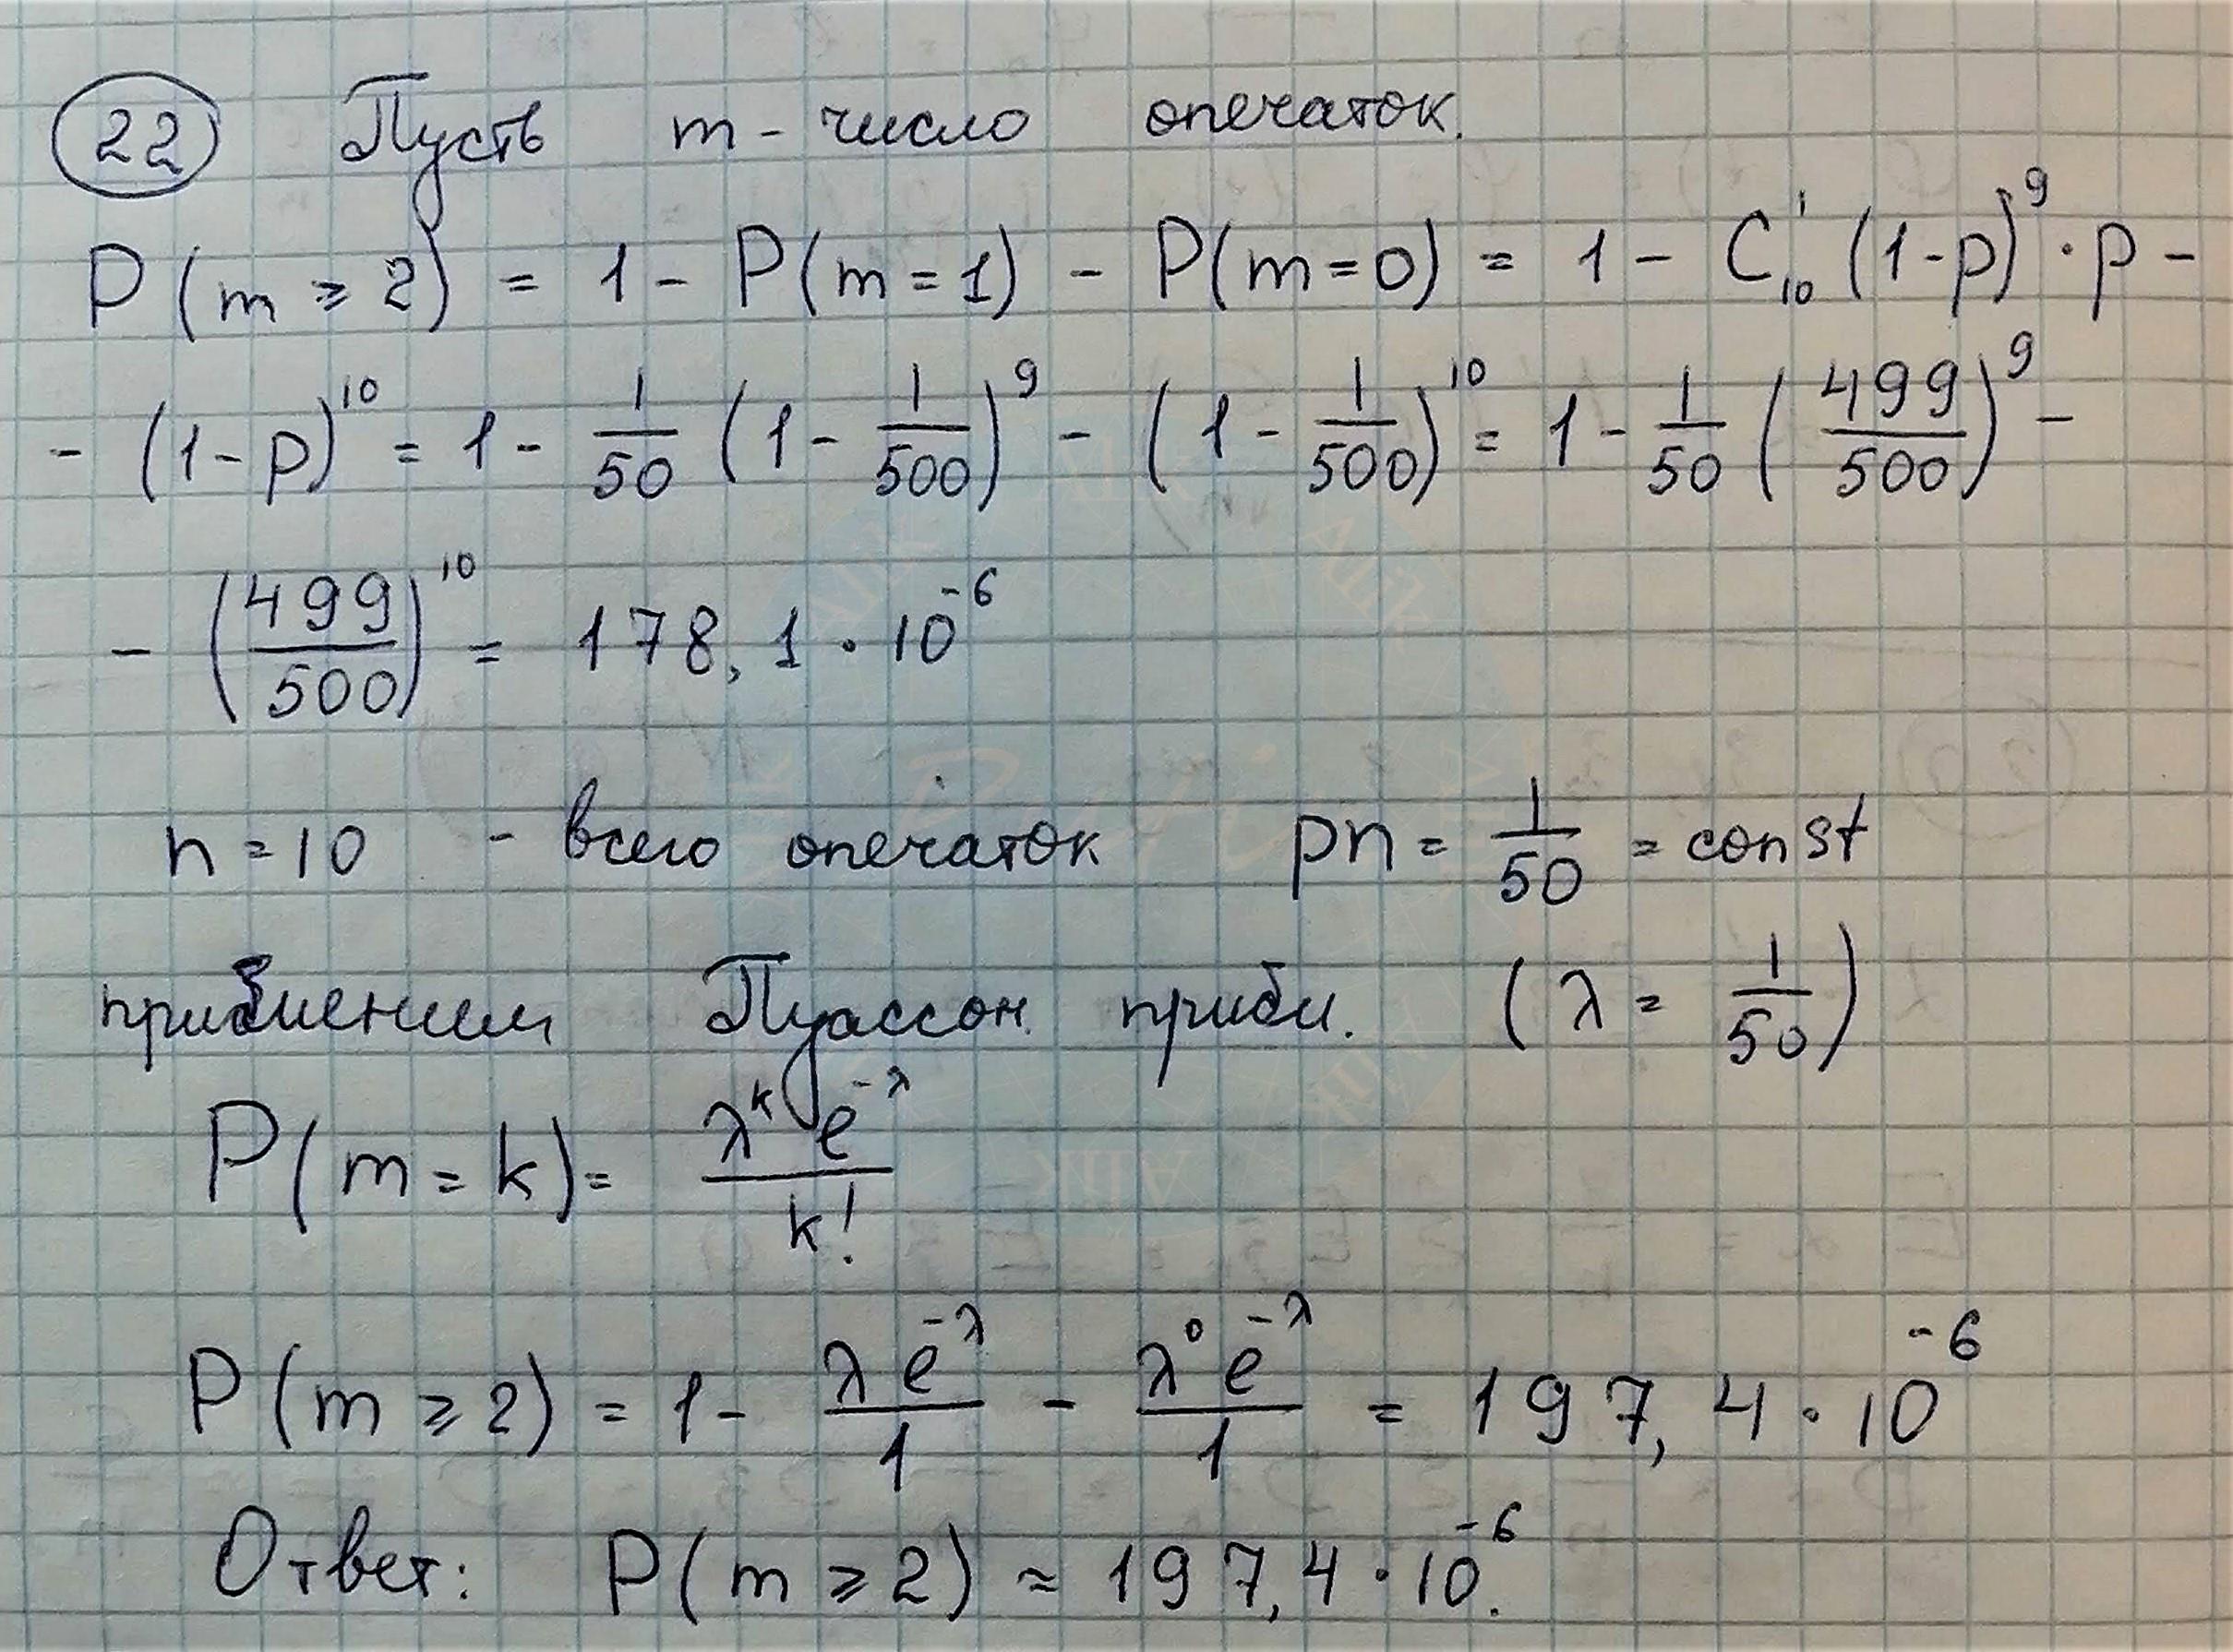 22 Пусть m - число опечаток.
P(m ≥ 2) = 1 - P(m = 1) - P(m = 0) = 1 - C₁₀¹ (1-p)⁹ · p -
- (1-p)¹⁰ = 1 - 1/50 (1 - 1/500)⁹ - (1 - 1/500)¹⁰ = 1 - 1/50 (499/500)⁹ -
- (499/500)¹⁰ = 178,1 · 10⁻⁶
n = 10 - всего опечаток pn = 1/50 = const
Пуассон. прибл. (λ = 1/50)
P(m = k) = λᵏ e^(-λ) / k!
P(m ≥ 2) = 1 - λ e^(-λ) / 1 - λ⁰ e^(-λ) / 1 = 197,4 · 10⁻⁶
Ответ: P(m ≥ 2) ≈ 197,4 · 10⁻⁶.